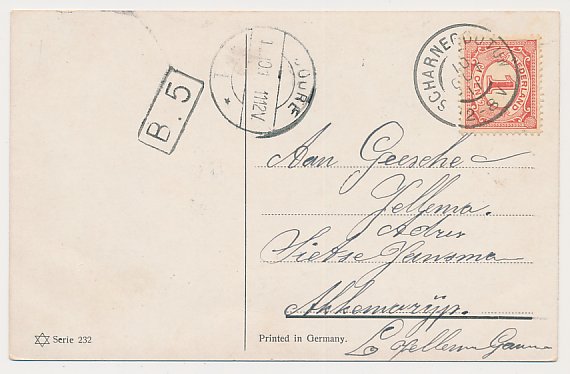 JOURE
1112V
B.5
SCHARNEGOUTUM
NEDERLAND
1
Aan Geesche
Jellema.
Adres
Sietse Jansma
Akkemarijp.
Jellema Gauw
Serie 232
Printed in Germany.